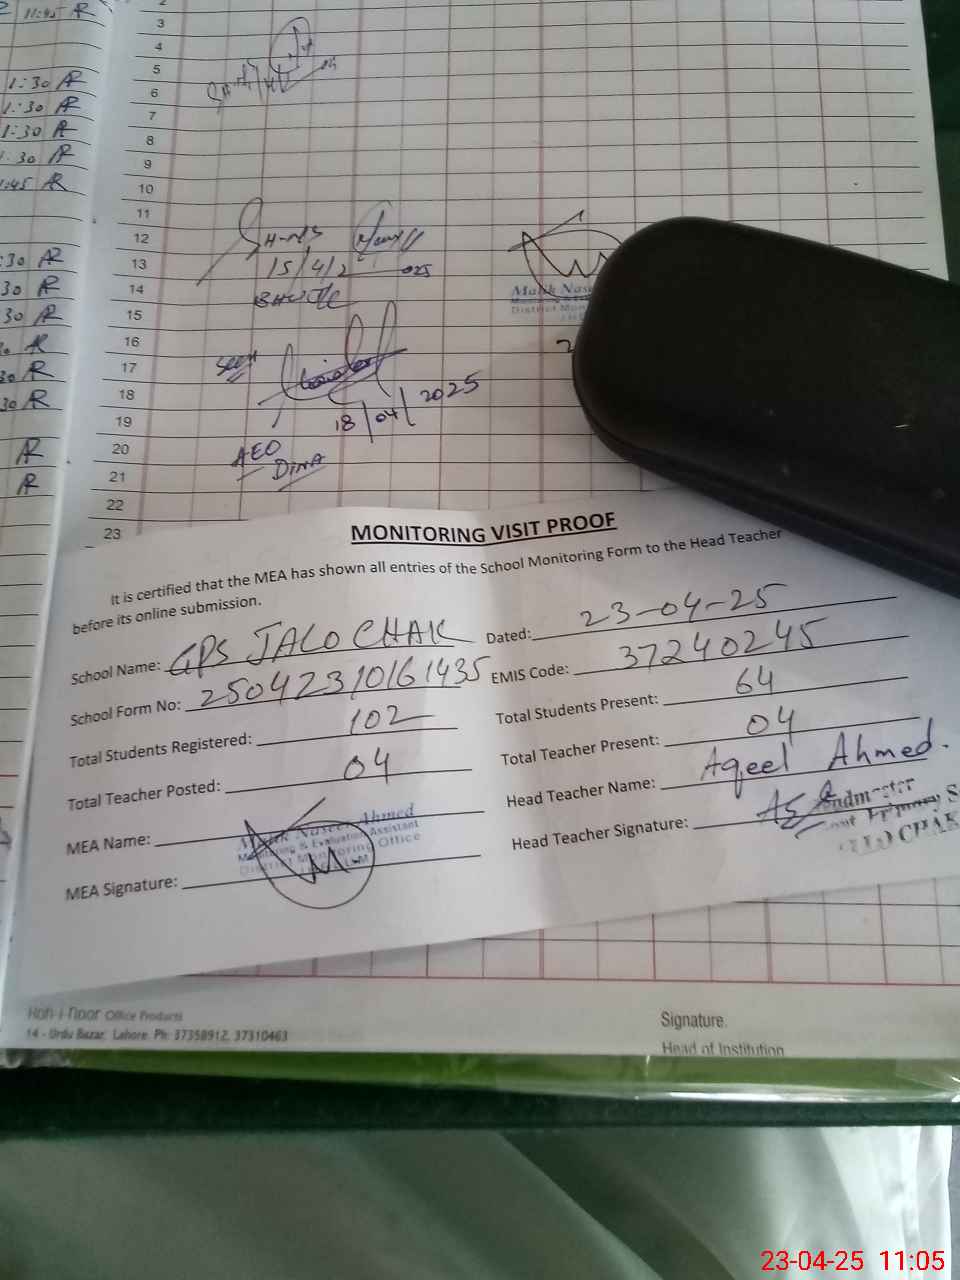 11:45 AR
1:30 AR
1:30 AR
1:30 AR
1:30 AR
1:45 AR
:30 AR
30 AR
30 AR
AR
30 AR
30 AR
AR
AR
2
3
4
5
6
7
8
9
10
11
12
13
14
15
16
17
18
19
20
21
22
23
15/4/2025
Malik Nase
District Mon
Seen
18/04/2025
AEO
DINA
MONITORING VISIT PROOF
It is certified that the MEA has shown all entries of the School Monitoring Form to the Head Teacher
before its online submission.
School Name: GPS JALO CHAK Dated: 23-04-25
School Form No: 25042310161435 EMIS Code: 37240245
Total Students Registered: 102 Total Students Present: 64
Total Teacher Posted: 04 Total Teacher Present: 04
MEA Name: Malik Naseer Ahmed Head Teacher Name: Aqeel Ahmed.
Monitoring & Evaluation Assistant
District Monitoring Office
MEA Signature: Head Teacher Signature:
Headmaster
Primary S
LO CHAK
Koh-i-Noor Office Products
14 - Urdu Bazar, Lahore. Ph: 37358912, 37310463
Signature.
Head of Institution
23-04-25 11:05